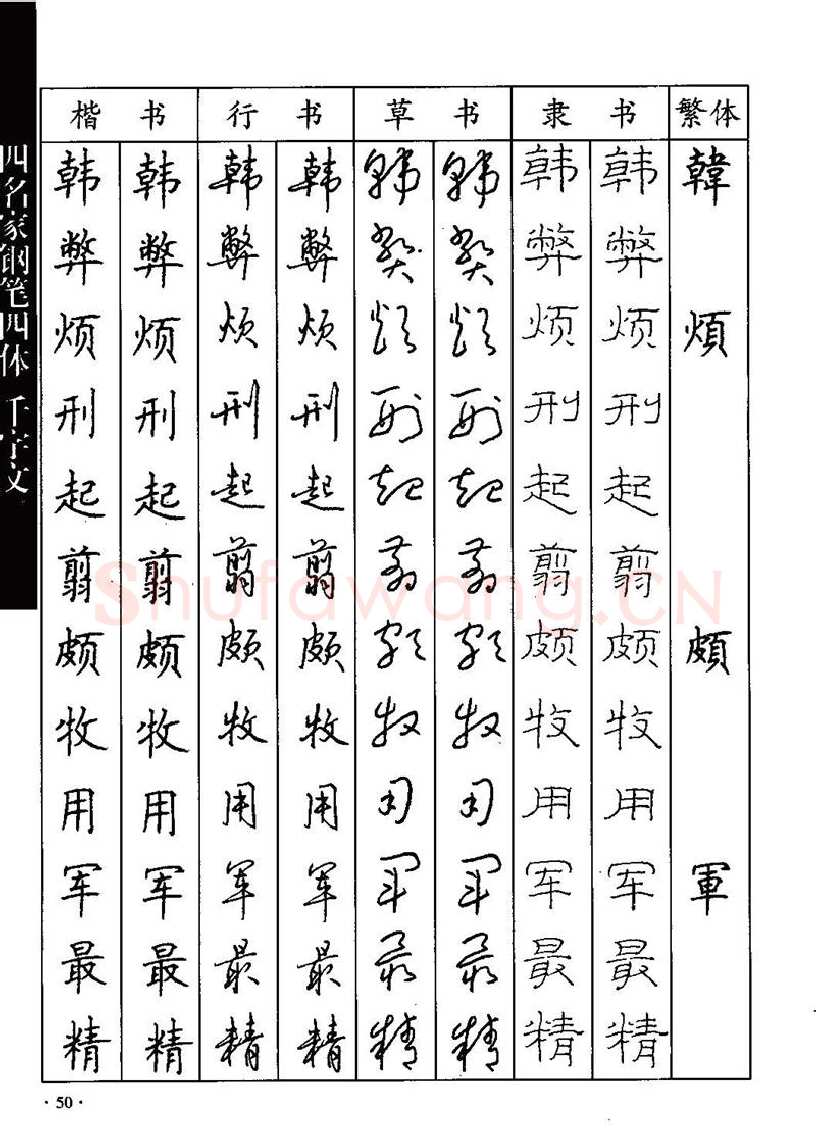 四名家钢笔四体 千字文
楷书 行书 草书 隶书 繁体
韩 韩 韩 韩 韩 韩 韩 韩 韓
弊 弊 弊 弊 弊 弊 弊 弊
烦 烦 烦 烦 烦 烦 烦 烦 煩
刑 刑 刑 刑 刑 刑 刑 刑
起 起 起 起 起 起 起 起
翦 翦 翦 翦 翦 翦 翦 翦
颇 颇 颇 颇 颇 颇 颇 颇 頗
牧 牧 牧 牧 牧 牧 牧 牧
用 用 用 用 用 用 用 用
军 军 军 军 军 军 军 军 軍
最 最 最 最 最 最 最 最
精 精 精 精 精 精 精 精
Shufawang.CN
·50·